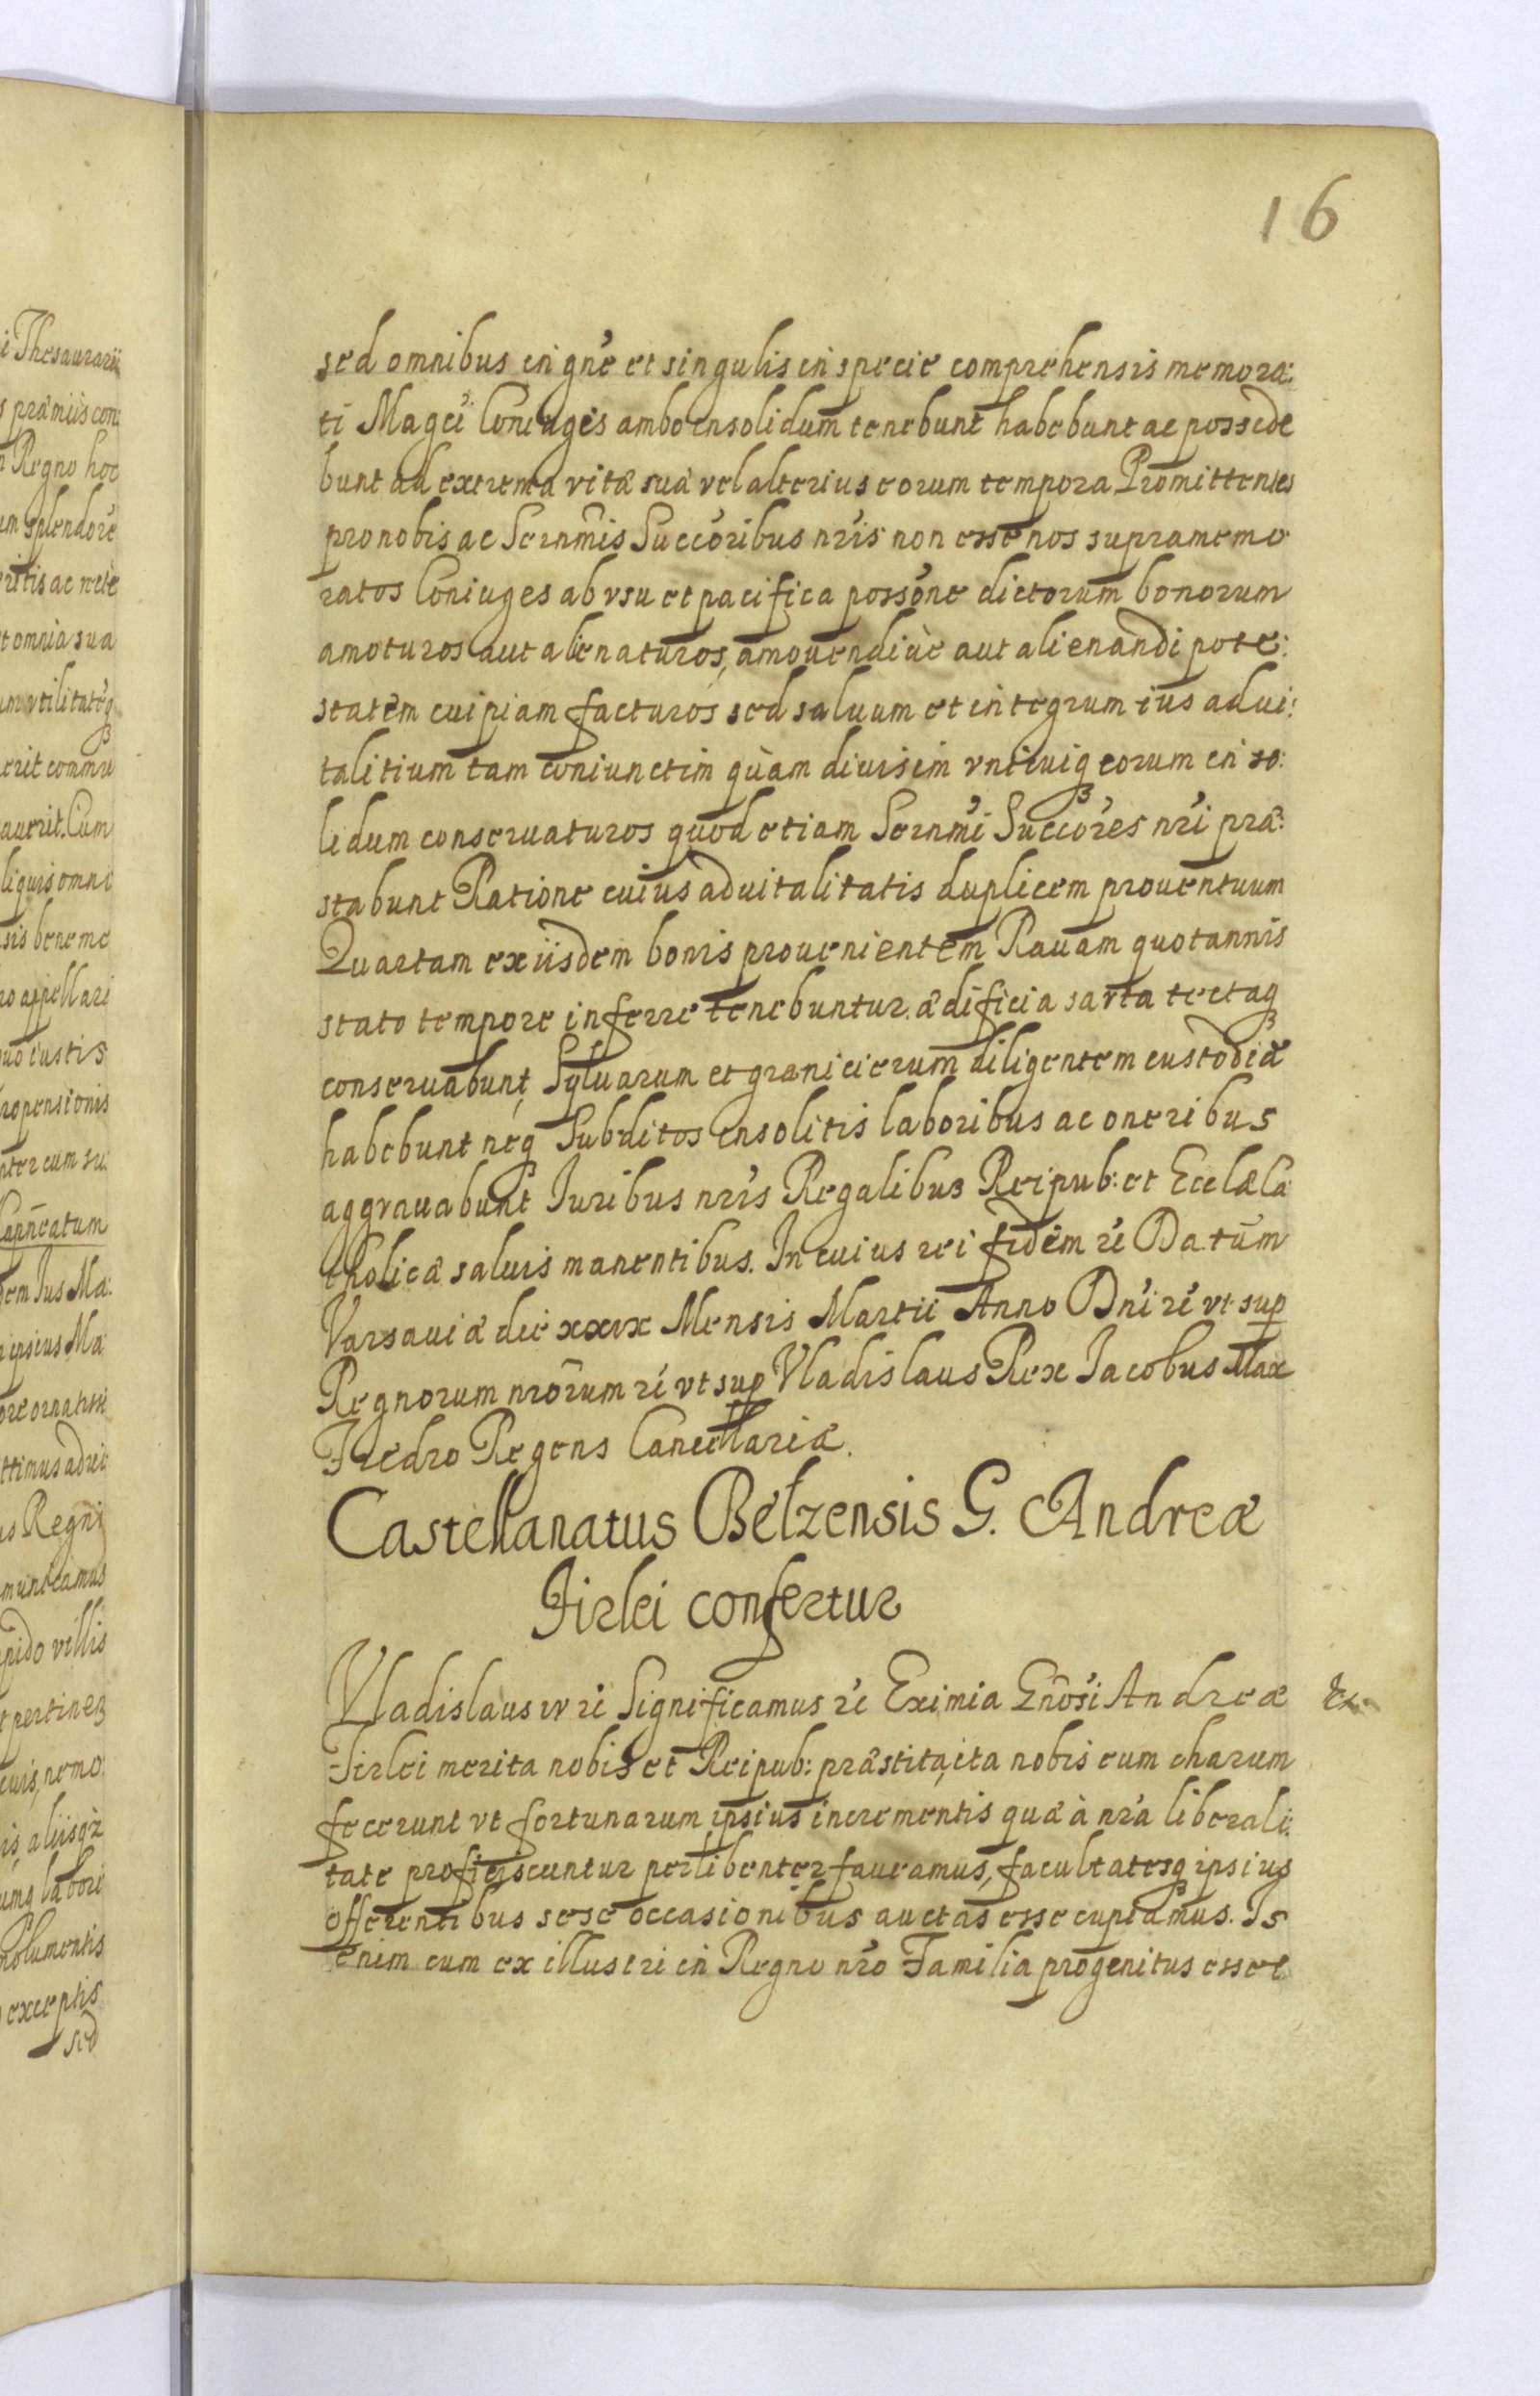 16
sed omnibus in gn̄e et singulis in specie comprehensis memora:
ti Magci Coniuges ambo insolidum tenebunt habebunt ac posside
bunt ad extrema vitæ suæ vel alterius eorum tempora Promittentes
pro nobis ac Sernm̄is Succōribus nr̄is non esse nos supramemo
ratos Coniuges ab vsu et pacifica possōne dictorum bonorum
amoturos aut alienaturos, amouendiùe aut alienandi pote:
statem cuipiam facturos sed saluum et integrum ius adui:
talitium tam coniunctim quàm diuisim vnicuiqꝫ eorum in so:
lidum conseruaturos quod etiam Sernm̄i Succōres nr̄i præ:
stabunt Ratione cuius aduitalitatis duplicem prouentuum
Quartam ex iisdem bonis prouenientem Rauam quotannis
stato tempore inferre tenebuntur. ædificia sarta tectaqꝫ
conseruabunt, Syluarum et granicierum diligentem custodiā
habebunt neqꝫ Subditos insolitis laboribus ac oneribus
aggrauabunt Iuribus nr̄is Regalibus Reipub: et Ecclæ Ca
tholicæ saluis manentibus. In cuius rei fidem rē Datum
Varsauiæ die xxıx Mensis Martii Anno Dn̄i rē vt sup
Regnorum nrōrum rē vt sup Vladislaus Rex Iacobus Max
Fredro Regens Cancellariæ.
Castellanatus Belzensis G. Andreæ
Firlei confertur
Vladislaus ıv rē Significamus rē Eximia Gnōsi Andreæ
Firlei merita nobis et Reipub: præstita, ita nobis eum charum
fecerunt vt fortunarum ipsius incrementis quæ à nr̄a liberali:
tate proficiscuntur perlibenter faueamus, facultatesqꝫ ipsius
offerentibus sese occasionibus auctas esse cupiamus. Is
enim cum ex illustri in Regno nr̄o Familia progenitus esset
i Thesaurarii
Regno hoc
splendore
omnia sua
Cum
omni
appellari
cum su:
Ius Ma:
ipsius Ma
Regni
villis
nemo
labori
exceptis
sed